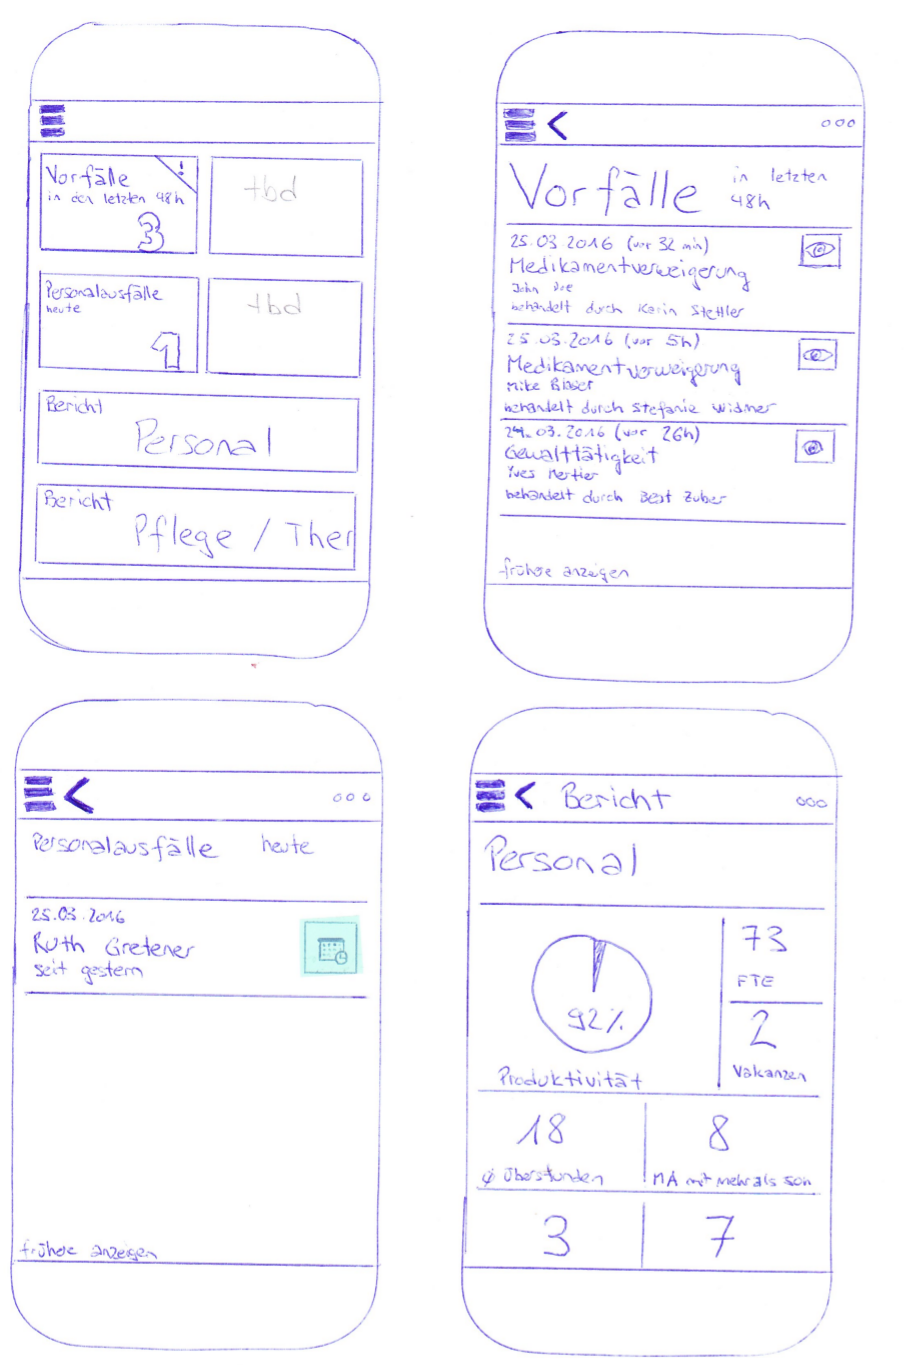 Vorfälle !
in den letzten 48h
3
tbd
Personalausfälle
heute
1
tbd
Bericht
Personal
Bericht
Pflege / Ther
Vorfälle in letzten
48h
25.03.2016 (vor 32 min)
Medikamentverweigerung
John Doe
behandelt durch Karin Stettler
25.03.2016 (vor 5h)
Medikamentverweigerung
Mike Blaser
behandelt durch Stefanie Widmer
24.03.2016 (vor 26h)
Gewalttätigkeit
Yves Mertier
behandelt durch Beat Zuber
frühere anzeigen
Personalausfälle heute
25.03.2016
Ruth Gretener
seit gestern
frühere anzeigen
Bericht
Personal
92%
Produktivität
73
FTE
2
Vakanzen
18
Ø Überstunden
8
MA mit mehr als 50h
3
7